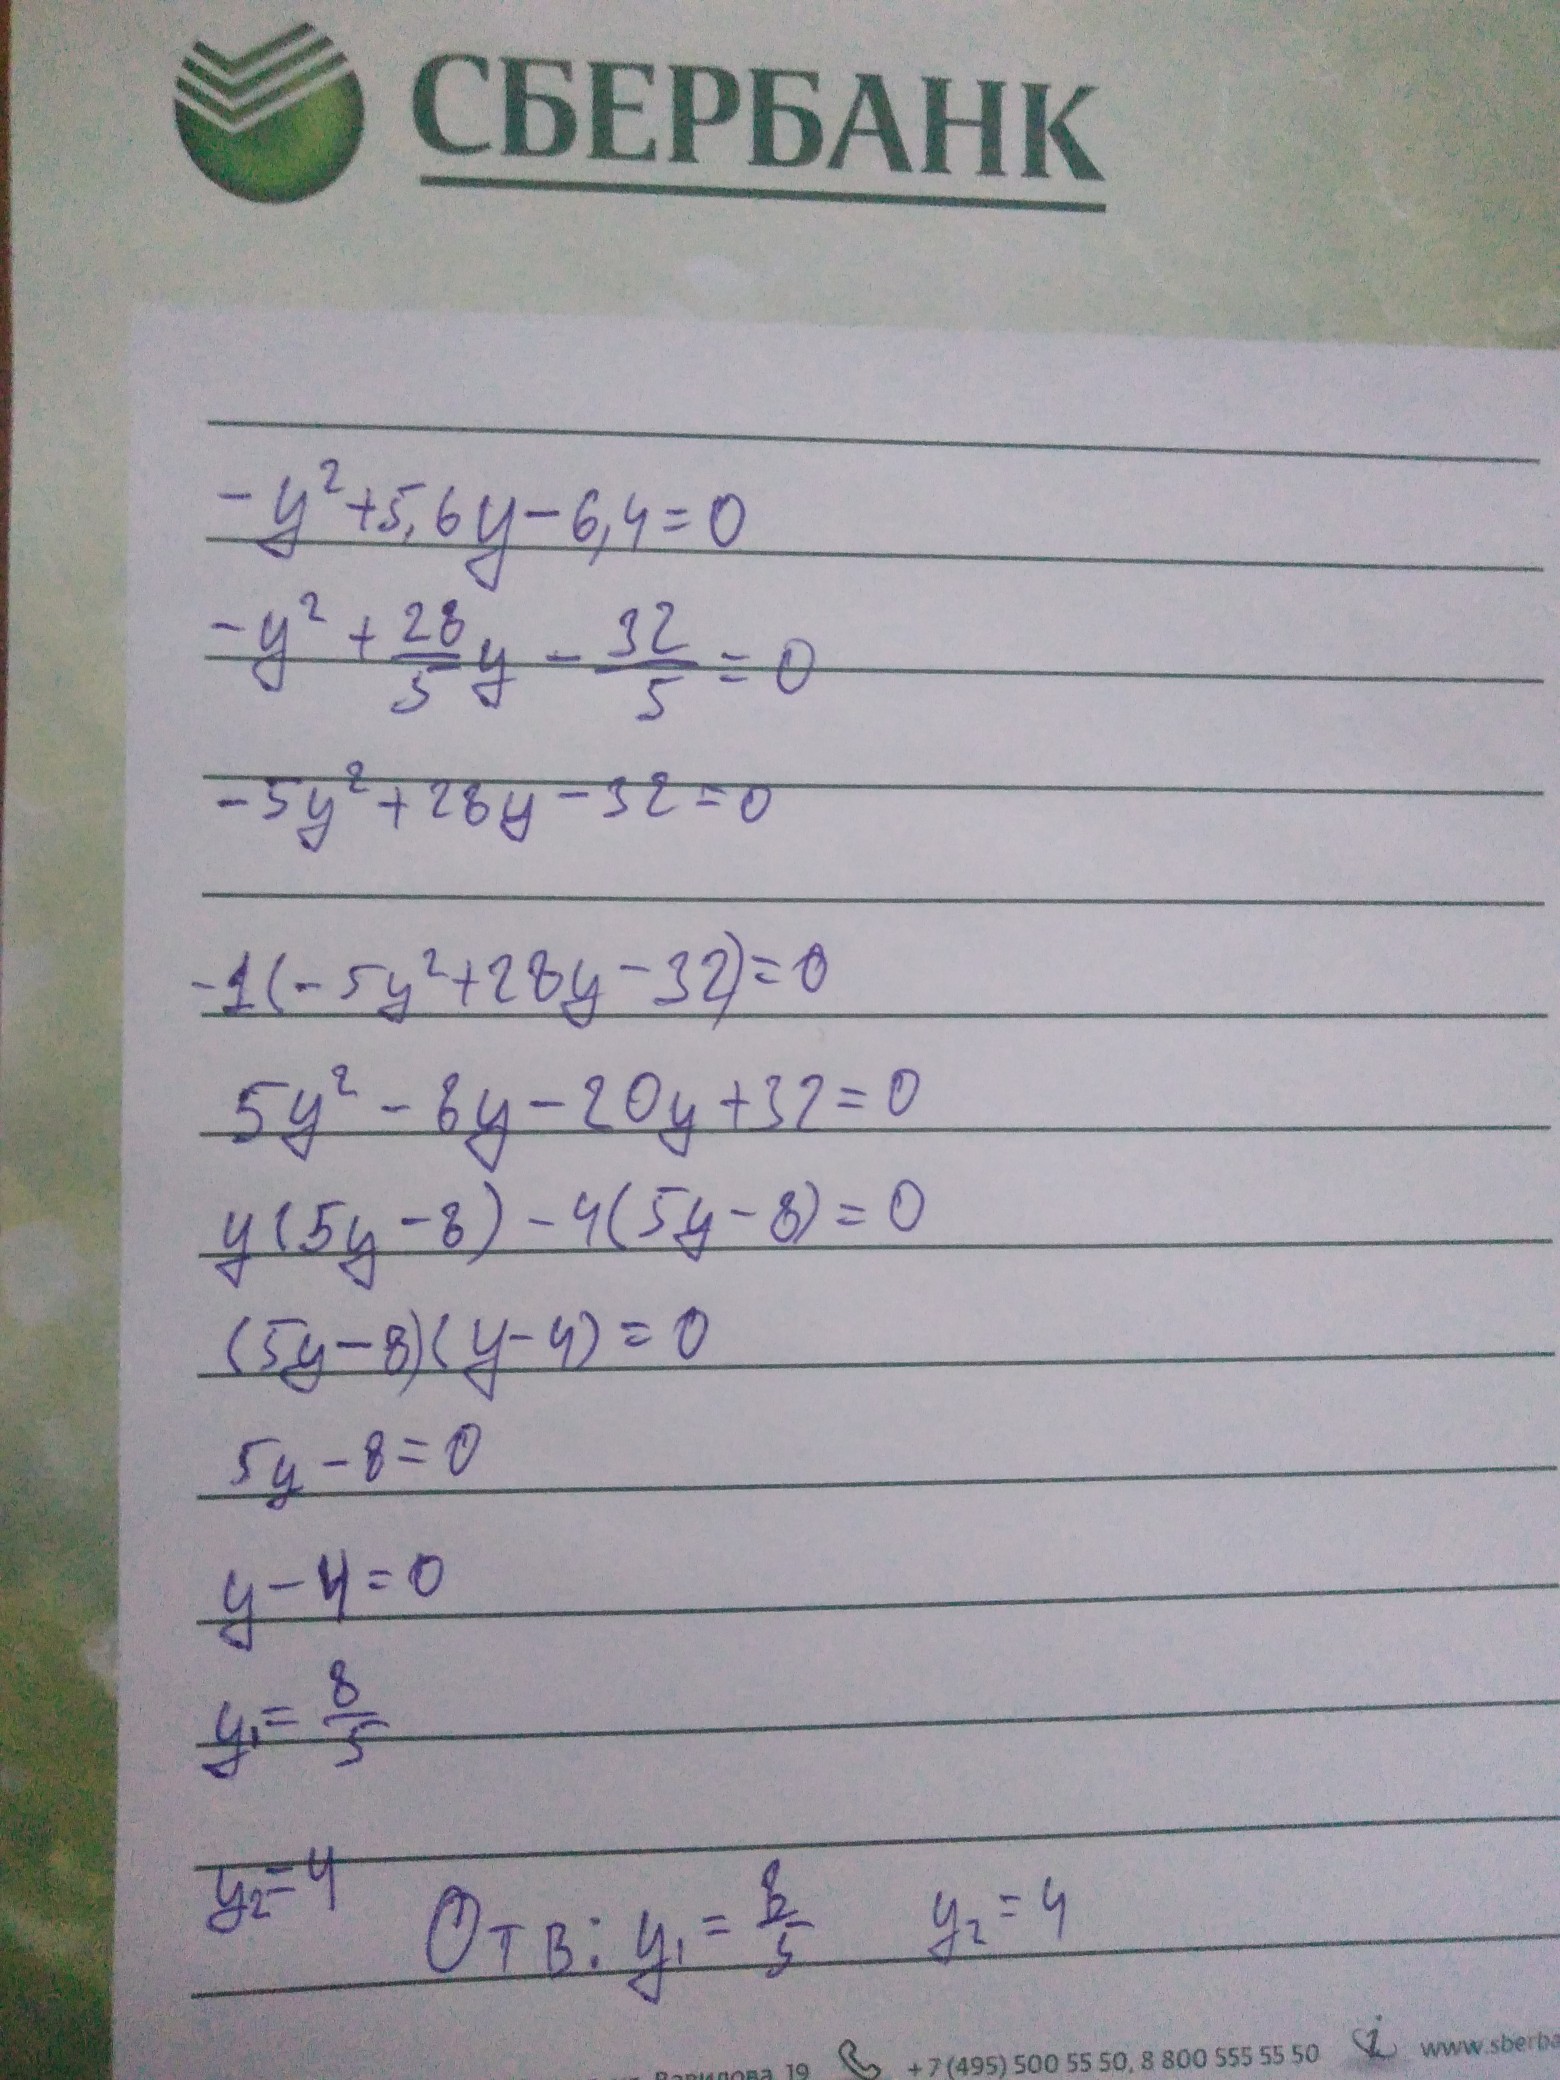 СБЕРБАНК
-y²+5,6y-6,4=0
-y²+28/5y-32/5=0
-5y²+28y-32=0
-1(-5y²+28y-32)=0
5y²-8y-20y+32=0
y(5y-8)-4(5y-8)=0
(5y-8)(y-4)=0
5y-8=0
y-4=0
y₁=8/5
y₂=4 Отв: y₁=8/5 y₂=4
19 +7 (495) 500 55 50, 8 800 555 55 50 www.sberba